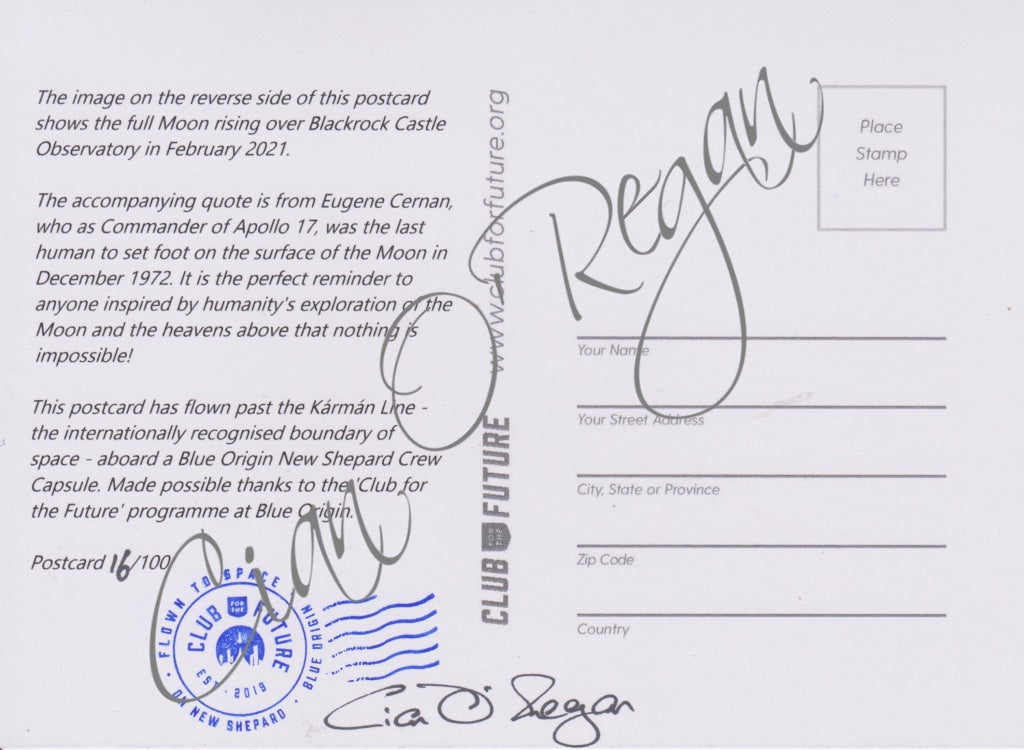 The image on the reverse side of this postcard
shows the full Moon rising over Blackrock Castle
Observatory in February 2021.
The accompanying quote is from Eugene Cernan,
who as Commander of Apollo 17, was the last
human to set foot on the surface of the Moon in
December 1972. It is the perfect reminder to
anyone inspired by humanity's exploration of the
Moon and the heavens above that nothing is
impossible!
This postcard has flown past the Kármán Line -
the internationally recognised boundary of
space - aboard a Blue Origin New Shepard Crew
Capsule. Made possible thanks to the 'Club for
the Future' programme at Blue Origin.
Postcard 16/100
FLOWN TO SPACE
ON NEW SHEPARD
BLUE ORIGIN
CLUB FOR THE FUTURE
EST · 2019
Cian O Regan
Cian Ó Regan
www.clubforfuture.org
CLUB FOR THE FUTURE
Place
Stamp
Here
Your Name
Your Street Address
City, State or Province
Zip Code
Country